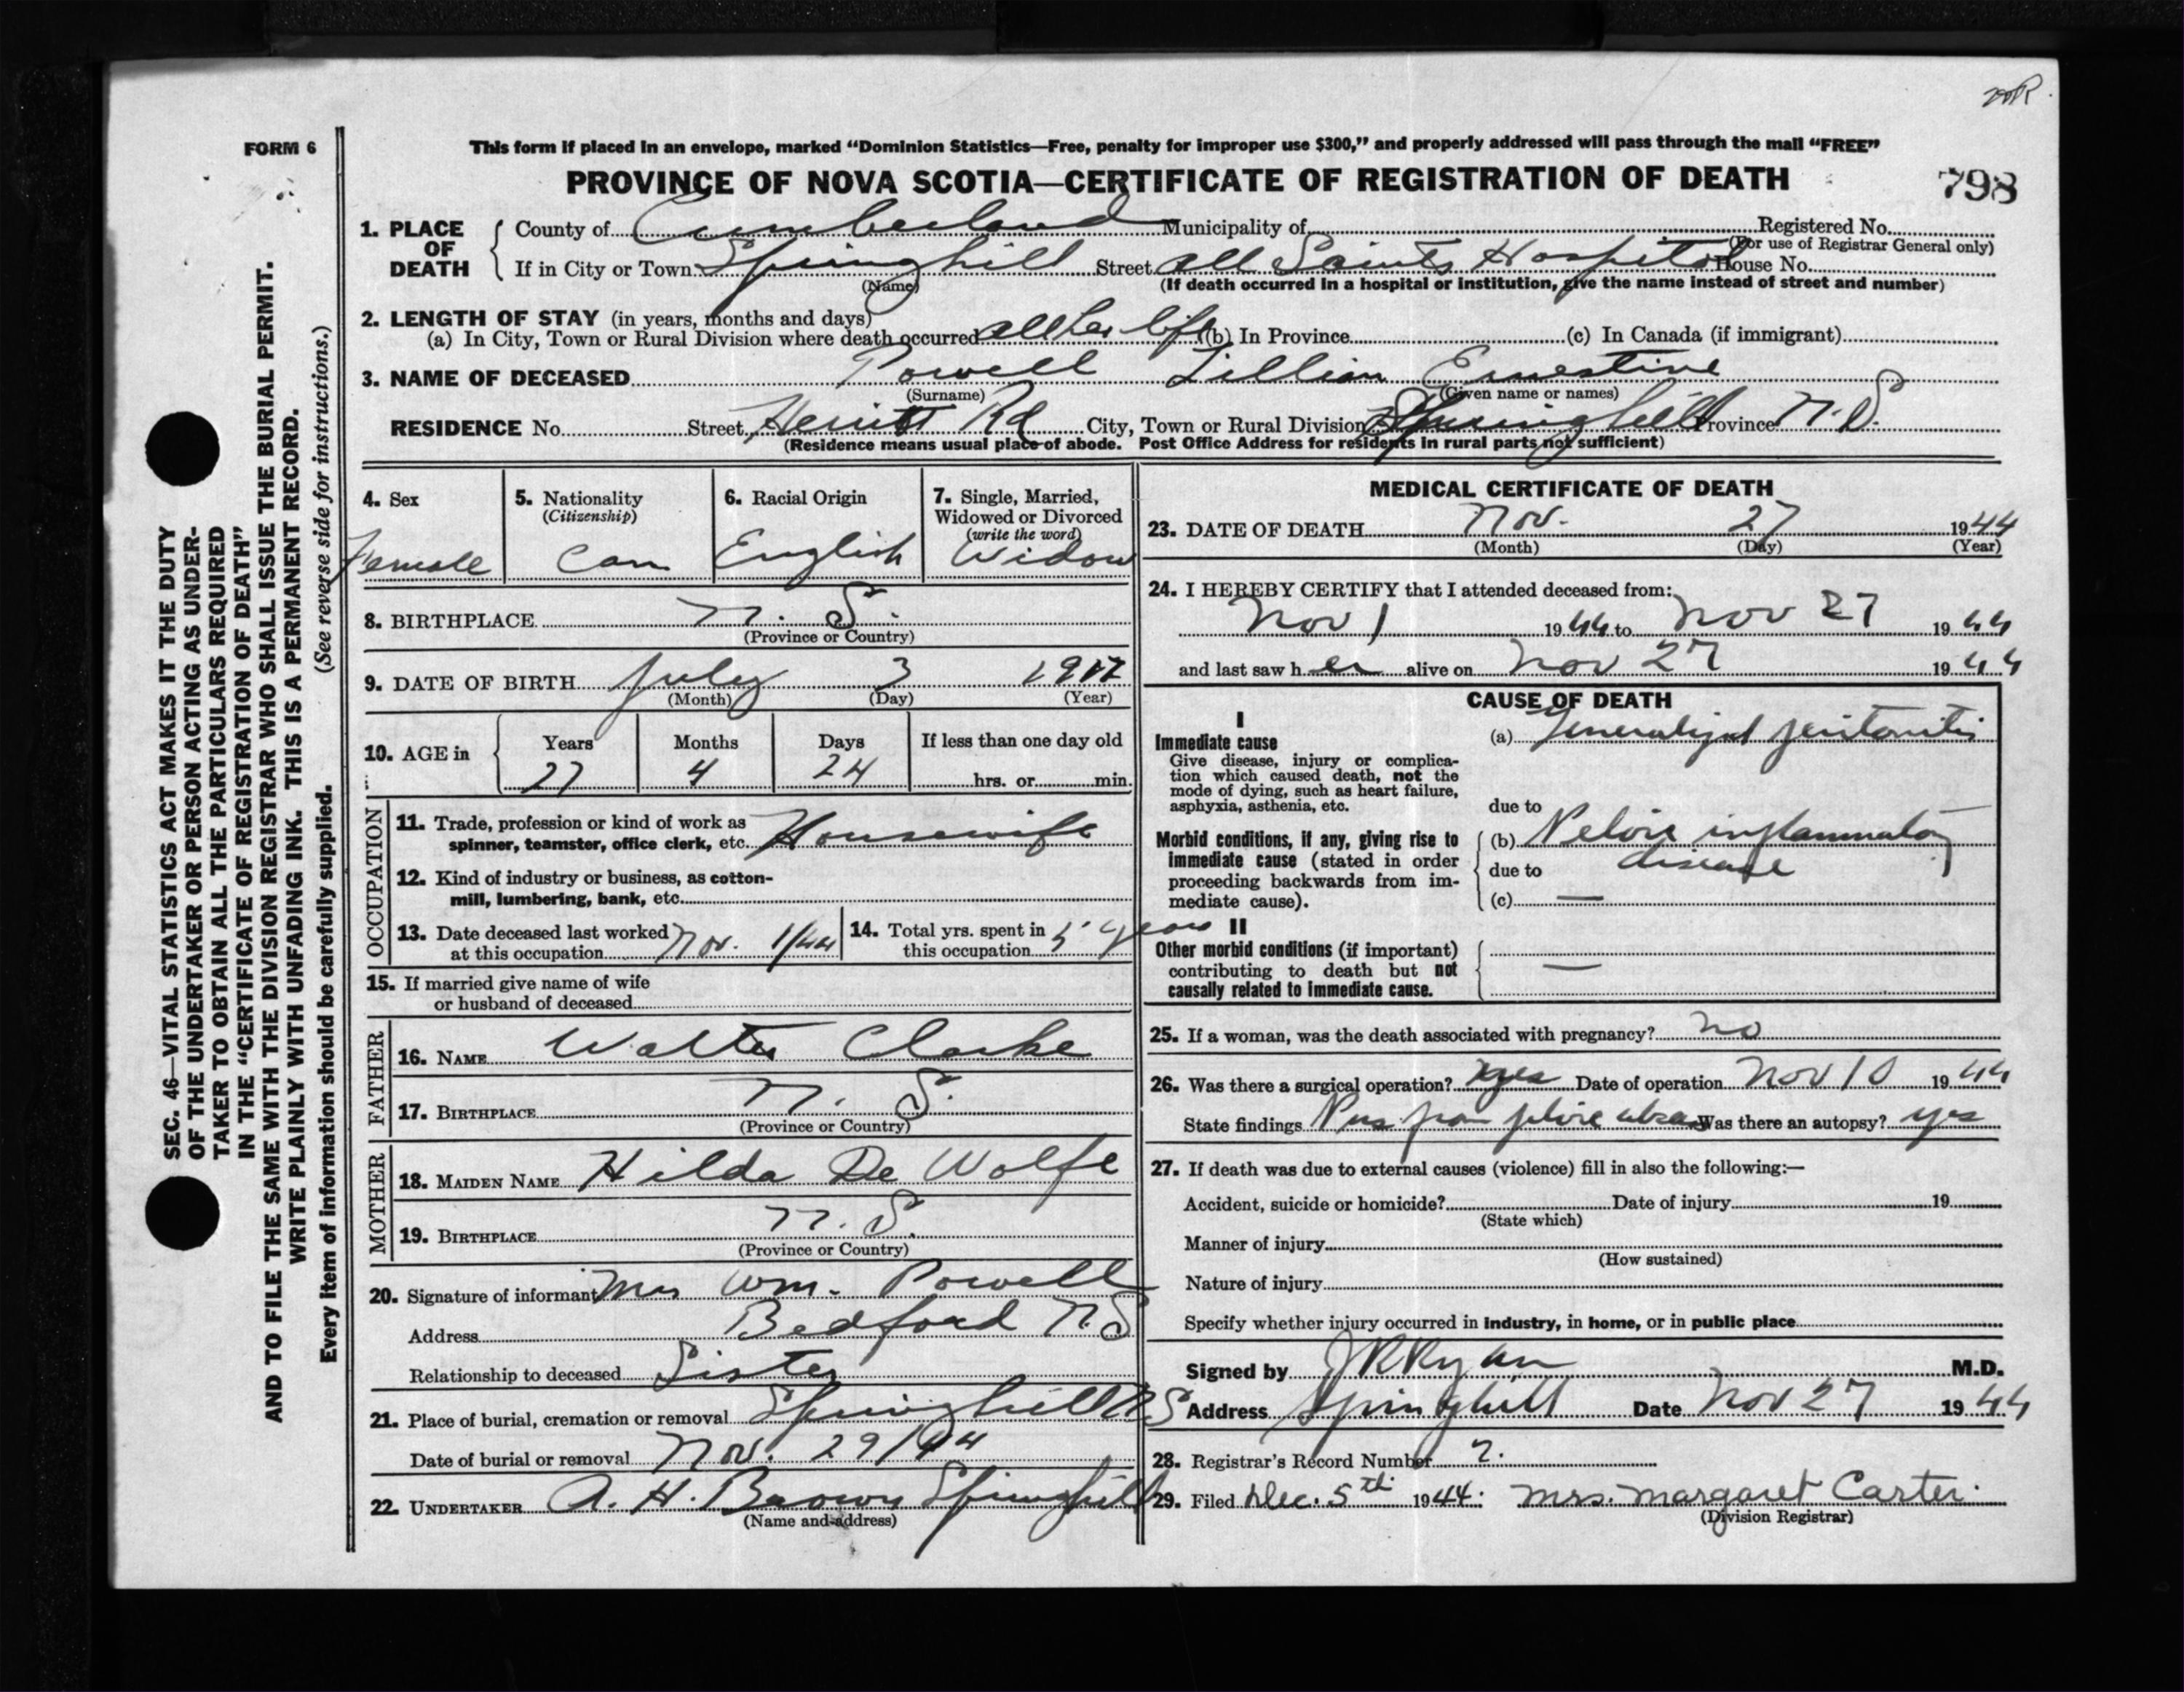 FORM 6
This form if placed in an envelope, marked “Dominion Statistics—Free, penalty for improper use $300,” and properly addressed will pass through the mail “FREE”
PROVINCE OF NOVA SCOTIA—CERTIFICATE OF REGISTRATION OF DEATH
798
SEC. 46—VITAL STATISTICS ACT MAKES IT THE DUTY
OF THE UNDERTAKER OR PERSON ACTING AS UNDER-
TAKER TO OBTAIN ALL THE PARTICULARS REQUIRED
IN THE “CERTIFICATE OF REGISTRATION OF DEATH”
AND TO FILE THE SAME WITH THE DIVISION REGISTRAR WHO SHALL ISSUE THE BURIAL PERMIT.
WRITE PLAINLY WITH UNFADING INK. THIS IS A PERMANENT RECORD.
Every item of information should be carefully supplied. (See reverse side for instructions.)
1. PLACE OF DEATH
County of Cumberland Municipality of Registered No.
(For use of Registrar General only)
If in City or Town Springhill Street All Saints Hospital House No.
(Name) (If death occurred in a hospital or institution, give the name instead of street and number)
2. LENGTH OF STAY (in years, months and days)
(a) In City, Town or Rural Division where death occurred all her life (b) In Province (c) In Canada (if immigrant)
3. NAME OF DECEASED Powell Lillian Ernestine
(Surname) (Given name or names)
RESIDENCE No. Street Rd City, Town or Rural Division Springhill Province N.S.
(Residence means usual place of abode. Post Office Address for residents in rural parts not sufficient)
4. Sex
Female
5. Nationality
(Citizenship)
Can
6. Racial Origin
English
7. Single, Married,
Widowed or Divorced
(write the word)
Widow
8. BIRTHPLACE N. S.
(Province or Country)
9. DATE OF BIRTH July 3 1917
(Month) (Day) (Year)
10. AGE in
Years Months Days If less than one day old
27 4 24 hrs. or min.
OCCUPATION
11. Trade, profession or kind of work as
spinner, teamster, office clerk, etc. Housewife
12. Kind of industry or business, as cotton-
mill, lumbering, bank, etc.
13. Date deceased last worked
at this occupation Nov. 1/44
14. Total yrs. spent in
this occupation 5 years
15. If married give name of wife
or husband of deceased
FATHER
16. NAME Walter Clarke
17. BIRTHPLACE N. S.
(Province or Country)
MOTHER
18. MAIDEN NAME Hilda De Wolfe
19. BIRTHPLACE N. S.
(Province or Country)
20. Signature of informant Mrs Wm. Powell
Address Bedford N.S
Relationship to deceased Sister
21. Place of burial, cremation or removal Springhill N S
Date of burial or removal Nov. 29/44
22. UNDERTAKER A. H. Brown Springhill
(Name and address)
MEDICAL CERTIFICATE OF DEATH
23. DATE OF DEATH Nov. 27 1944
(Month) (Day) (Year)
24. I HEREBY CERTIFY that I attended deceased from:
Nov 1 1944 to Nov 27 1944
and last saw h er alive on Nov 27 1944
CAUSE OF DEATH
I
Immediate cause
Give disease, injury or complica-
tion which caused death, not the
mode of dying, such as heart failure,
asphyxia, asthenia, etc.
(a) Generalized peritonitis
due to
Morbid conditions, if any, giving rise to
immediate cause (stated in order
proceeding backwards from im-
mediate cause).
(b) Pelvic inflammatory
due to disease
(c) —
II
Other morbid conditions (if important)
contributing to death but not
causally related to immediate cause.
—
25. If a woman, was the death associated with pregnancy? no
26. Was there a surgical operation? yes Date of operation Nov 10 1944
State findings Pus from pelvic Was there an autopsy? yes
27. If death was due to external causes (violence) fill in also the following:—
Accident, suicide or homicide? Date of injury 19
(State which)
Manner of injury
(How sustained)
Nature of injury
Specify whether injury occurred in industry, in home, or in public place
Signed by J R Ryan M.D.
Address Springhill Date Nov 27 1944
28. Registrar's Record Number 7.
29. Filed Dec. 5th 1944. Mrs. Margaret Carter.
(Division Registrar)